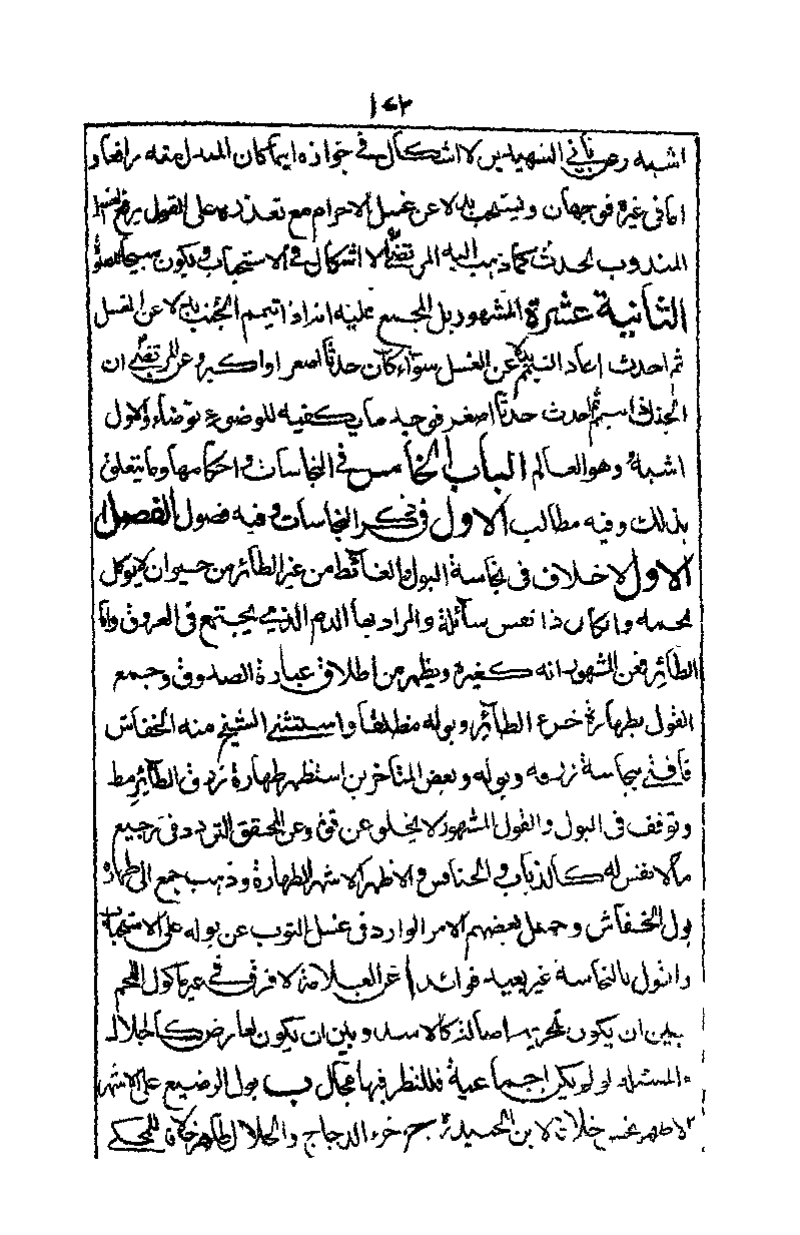 ١٤٣
اشبه وعن ثاني الشهيدين لا اشكال في جوازه اذا كان المبدل منه رافعا و
اما في غيره فوجهان ويستحب بدلا عن غسل الاحرام مع تعذره على القول برفع الغسل
المندوب الحدث كما ذهب اليه المرتضى لا اشكال في الاستحباب ويكون مبيحا للصلوة
الثانية عشرة المشهور بل المجمع عليه انه اذا تيمم الجنب بدلا عن الغسل
ثم احدث اعاد التيمم بدلا عن الغسل سواء كان حدثا اصغر او اكبر وعن المرتضى ان
الجنب اذا تيمم ثم احدث حدثا اصغر فوجد ما يكفيه للوضوء توضاء والاول
اشبه وهو العالم الباب الخامس في النجاسات واحكامها وما يتعلق
بذلك وفيه مطالب الاول في ذكر النجاسات وفيه فصول الفصل
الاول لا خلاف في نجاسة البول والغائط من غير الطائر من حيوان لا يؤكل
لحمه وان كان ذا نفس سائلة والمراد بها الدم الذي يجتمع في العروق واما
الطائر فعن المشهور انه كغيره ويظهر من اطلاق عبارة الصدوق وجمع
القول بطهارة خرء الطائر وبوله مطلقا واستثنى الشيخ منه الخفاش
فافتى بنجاسة زرقه وبوله وبعض المتاخرين استظهر طهارة زرق الطائر مط
وتوقف في البول والقول المشهور لا يخلو عن قوة وعن المحقق التردد في رجيع
ما لا نفس له كالذباب والخنافس والاظهر الاشهر الطهارة وذهب جمع الى طهارة
بول الخفاش وحمل بعضهم الامر الوارد في غسل الثوب عن بوله على الاستحباب
والقول بالنجاسة غير بعيد فوائد ا عن العلامة لا فرق في غير ماكول اللحم
بين ان يكون تحريمه اصالة كالاسد وبين ان يكون لعارض كالجلال
المسئلة لو لم يكن اجماعية فللنظر فيها مجال ب بول الرضيع على الاشهر
الاظهر نجس خلافا لابن الجنيد ج خرء الدجاج والحلال طاهر خلافا للمحكي